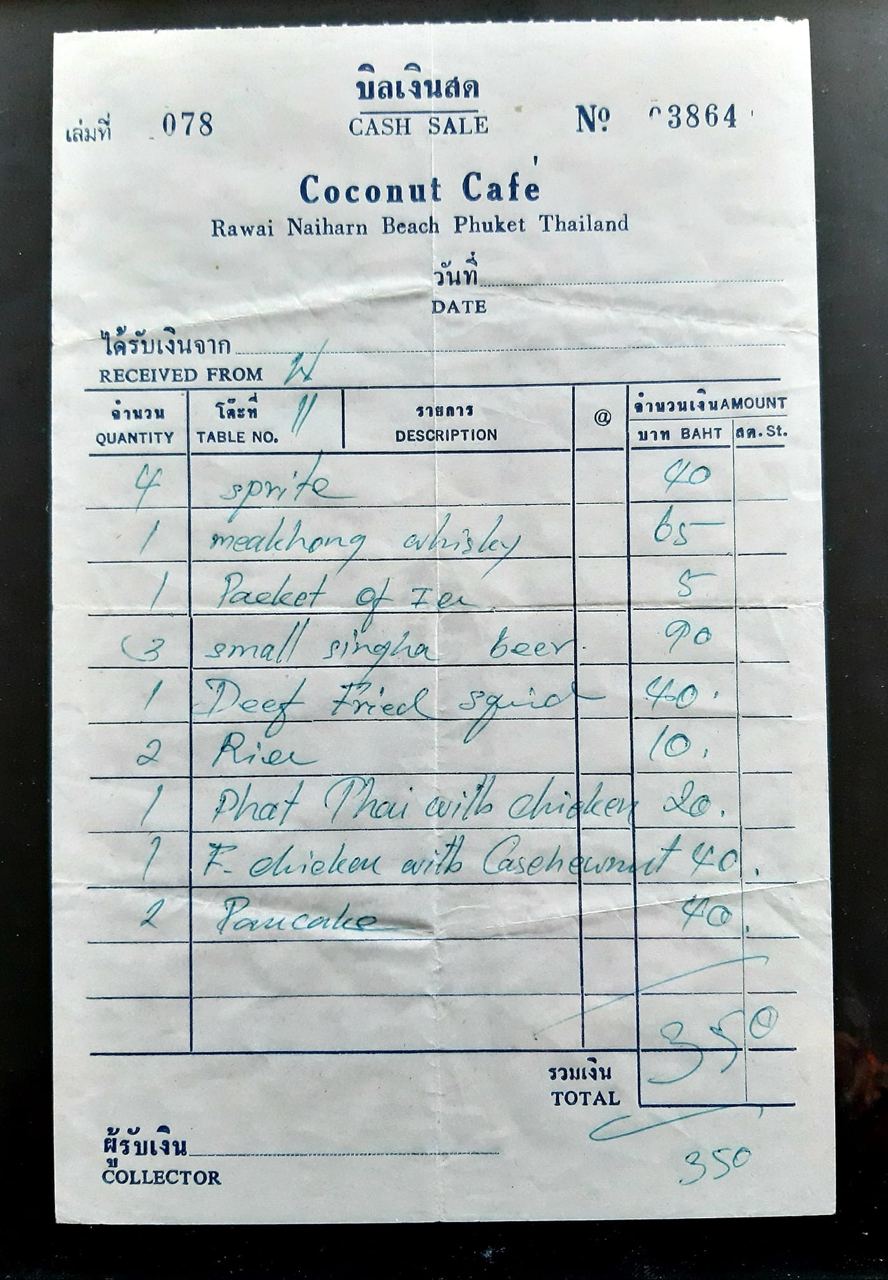 บิลเงินสด
เล่มที่ 078 CASH SALE Nº 03864
Coconut Café
Rawai Naiharn Beach Phuket Thailand
วันที่
DATE
ได้รับเงินจาก
RECEIVED FROM
จำนวน โต๊ะที่ 11 รายการ @ จำนวนเงิน AMOUNT
QUANTITY TABLE NO. DESCRIPTION บาท BAHT สต. St.
4 sprite 40
1 meakhong whisky 65
1 Packet of Ice 5
3 small singha beer 90
1 Deef Fried squid 40.
2 Rice 10.
1 Phat Thai with chicken 20.
1 F. chicken with Casehewnut 40.
2 Pancake 40.
350
รวมเงิน
TOTAL
ผู้รับเงิน
COLLECTOR
350